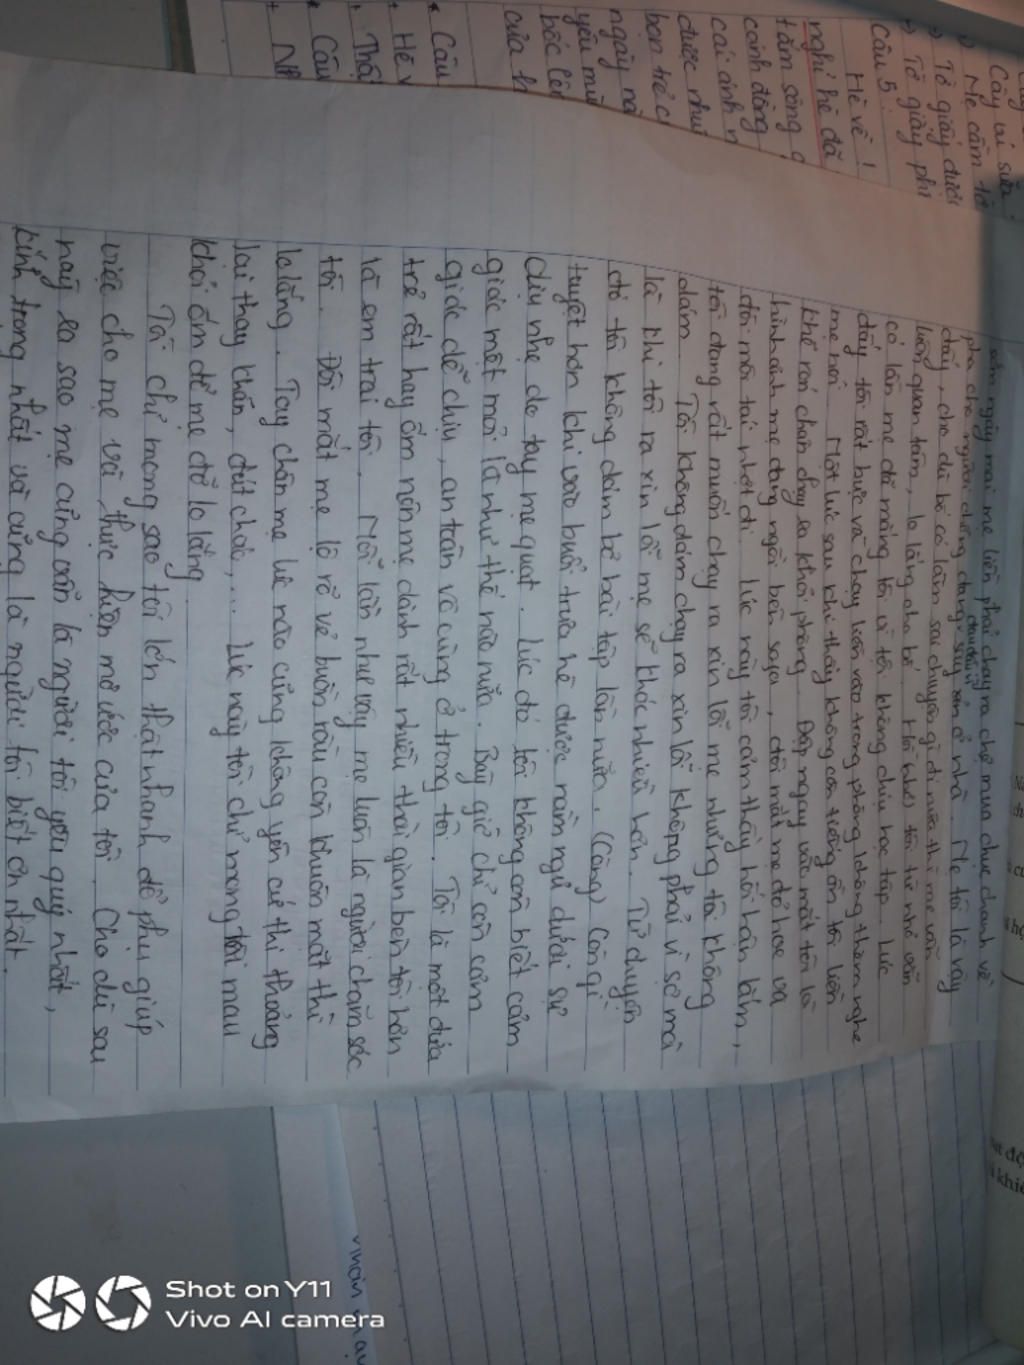 sớm ngày mai mẹ liền phải chạy ra chợ mua chục chanh về
pha cho người chồng đang say xỉn ở nhà. Mẹ tôi là vậy
chu đáo vì
đấy, cho dù bố có lầm sai chuyện gì đi nữa thì mẹ vẫn
luôn quan tâm, lo lắng cho bố. Hồi nhỏ, tôi từ nhỏ vẫn
có lần mẹ đã mắng tôi vì tôi không chịu học tập. Lúc
đấy tôi rất bực và chạy liền vào trong phòng không thèm nghe
mẹ nói. Một lúc sau khi thấy không còn tiếng ồn tôi liền
khẽ rón chân chạy ra khỏi phòng. Đập ngay vào mắt tôi là
hình ảnh mẹ đang ngồi bên sofa, đôi mắt mẹ đỏ hoe và
đôi môi tái nhợt đi. Lúc này tôi cảm thấy hối hận lắm,
tôi đang rất muốn chạy ra xin lỗi mẹ nhưng tôi không
dám. Tôi không dám chạy ra xin lỗi không phải vì sợ mà
là khi tôi ra xin lỗi mẹ sẽ khóc nhiều hơn. Từ chuyện
đó tôi không dám bỏ bài tập lần nữa. (Càng) Còn gì
tuyệt hơn khi vào buổi trưa hè được nằm ngủ dưới sự
dịu nhẹ do tay mẹ quạt. Lúc đó tôi không còn biết cảm
giác mệt mỏi là như thế nào nữa. Bây giờ chỉ còn cảm
giác dễ chịu, an toàn vô cùng ở trong tôi. Tôi là một đứa
trẻ rất hay ốm nên mẹ dành rất nhiều thời gian bên tôi hơn
là em trai tôi. Mỗi lần như vậy mẹ luôn là người chăm sóc
tôi. Đôi mắt mẹ lộ rõ vẻ buồn rầu còn khuôn mặt thì
lo lắng. Tay chân mẹ lúc nào cũng không yên cứ thi thoảng
lại thay khăn, đút cháo,... Lúc này tôi chỉ mong tôi mau
khỏi ốm để mẹ đỡ lo lắng.
Tôi chỉ mong sao tôi lớn thật nhanh để phụ giúp
việc cho mẹ và thực hiện mơ ước của tôi. Cho dù sau
này ra sao mẹ cũng vẫn là người tôi yêu quý nhất,
kính trọng nhất và cũng là người tôi biết ơn nhất.
Cây
Mẹ cầm tờ
Tờ giấy dưới
Tờ giấy phi
Câu 5:
Hè về !
nghỉ hè đã
tắm sông
cánh đồng
cái ánh n
được như
bọn trẻ c
ngày nà
yêu mù
bốc lên
của h
* Câu
+ Hè v
Câu
Shot on Y11
Vivo AI camera